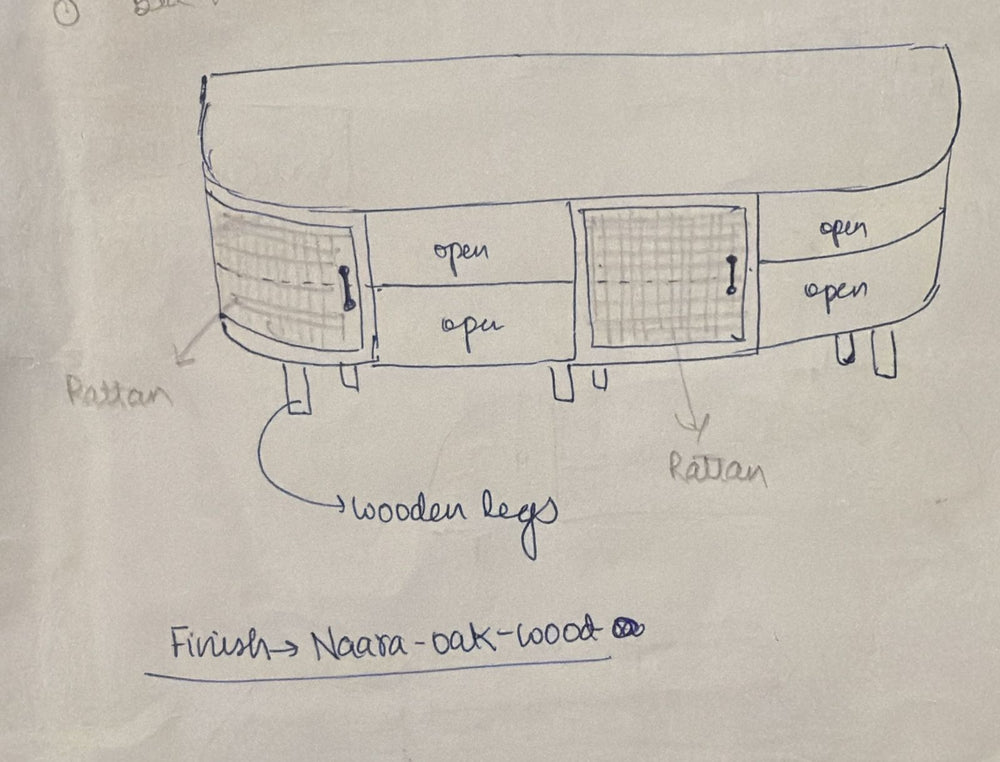 open
open
open
open
Rattan
Rattan
wooden legs
Finish→ Naara-oak-wood